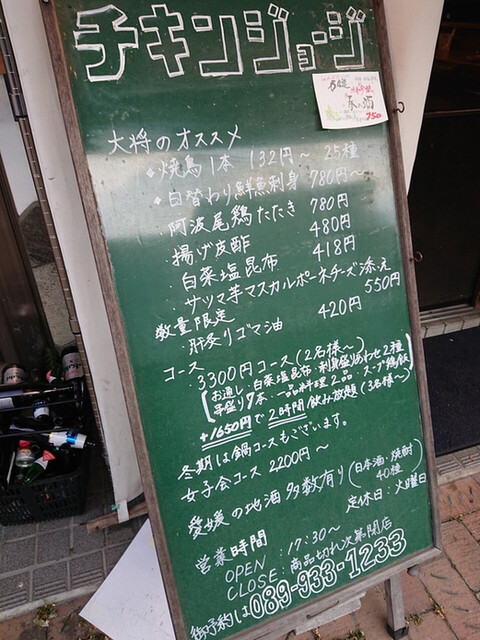 チキンジョージ
春の酒
750
大将のオススメ
・焼鳥1本 132円〜 25種
・日替わり鮮魚刺身 780円〜
・阿波尾鶏たたき 780円
・揚げ皮酢 480円
・白菜塩昆布 418円
・サツマ芋マスカルポーネチーズ添え 550円
数量限定
・肝炙りゴマ油 420円
コース
・3300円コース(2名様〜)
お通し・白菜塩昆布・刺身盛りあわせ2種
串盛り7本・一品料理2品・スープ鶏飯
+1650円で2時間飲み放題(3名様〜)
冬期は鍋コースもございます。
女子会コース 2200円〜
愛媛の地酒多数有り(日本酒・焼酎 40種)
定休日:火曜日
営業時間
OPEN:17:30〜
CLOSE:商品切れ次第閉店
御予約は089-933-1233